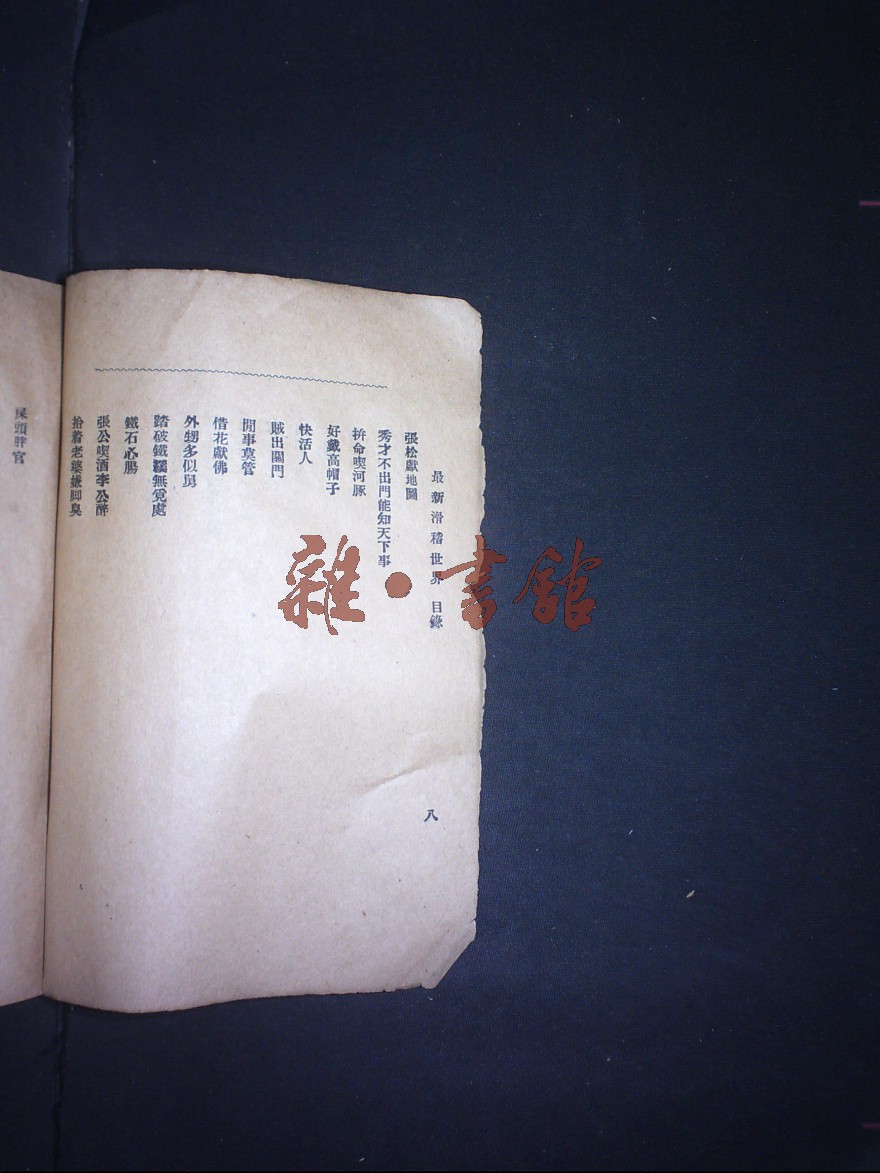 最新滑稽世界 目錄
八
張松獻地圖
秀才不出門能知天下事
拚命喫河豚
好戴高帽子
快活人
賊出關門
閒事莫管
借花獻佛
外甥多似舅
踏破鐵鞋無覓處
鐵石心腸
張公喫酒李公醉
拾着老婆嫌脚臭
屎頭胖官
雜·書館